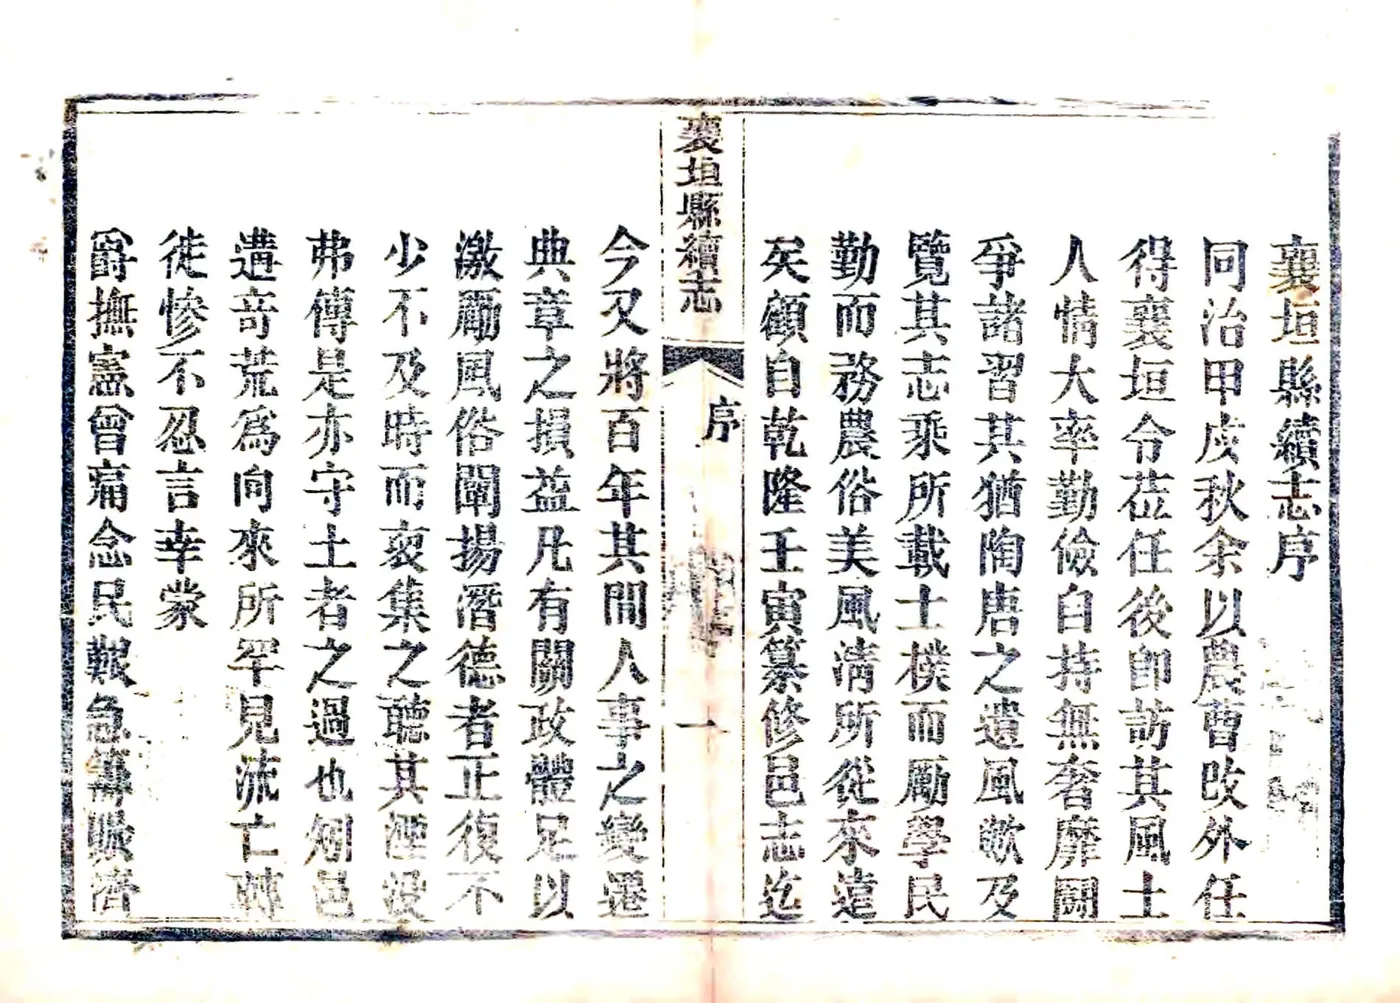 襄垣縣續志序
同治甲戌秋余以農曹改外任
得襄垣令莅任後卽訪其風土
人情大率勤儉自持無奢靡鬪
爭諸習其猶陶唐之遺風歟及
覽其志乘所載士樸而勵學民
勤而務農俗美風淸所從來遠
矣顧自乾隆壬寅纂修邑志迄
襄垣縣續志
序
一
今又將百年其間人事之變遷
典章之損益凡有關政體足以
激勵風俗闡揚潛德者正復不
少不及時而裒集之聽其湮没
弗傳是亦守土者之過也矧邑
遘奇荒爲向來所罕見流亡轉
徙慘不忍言幸蒙
爵撫憲曾痌念民艱急籌賑濟